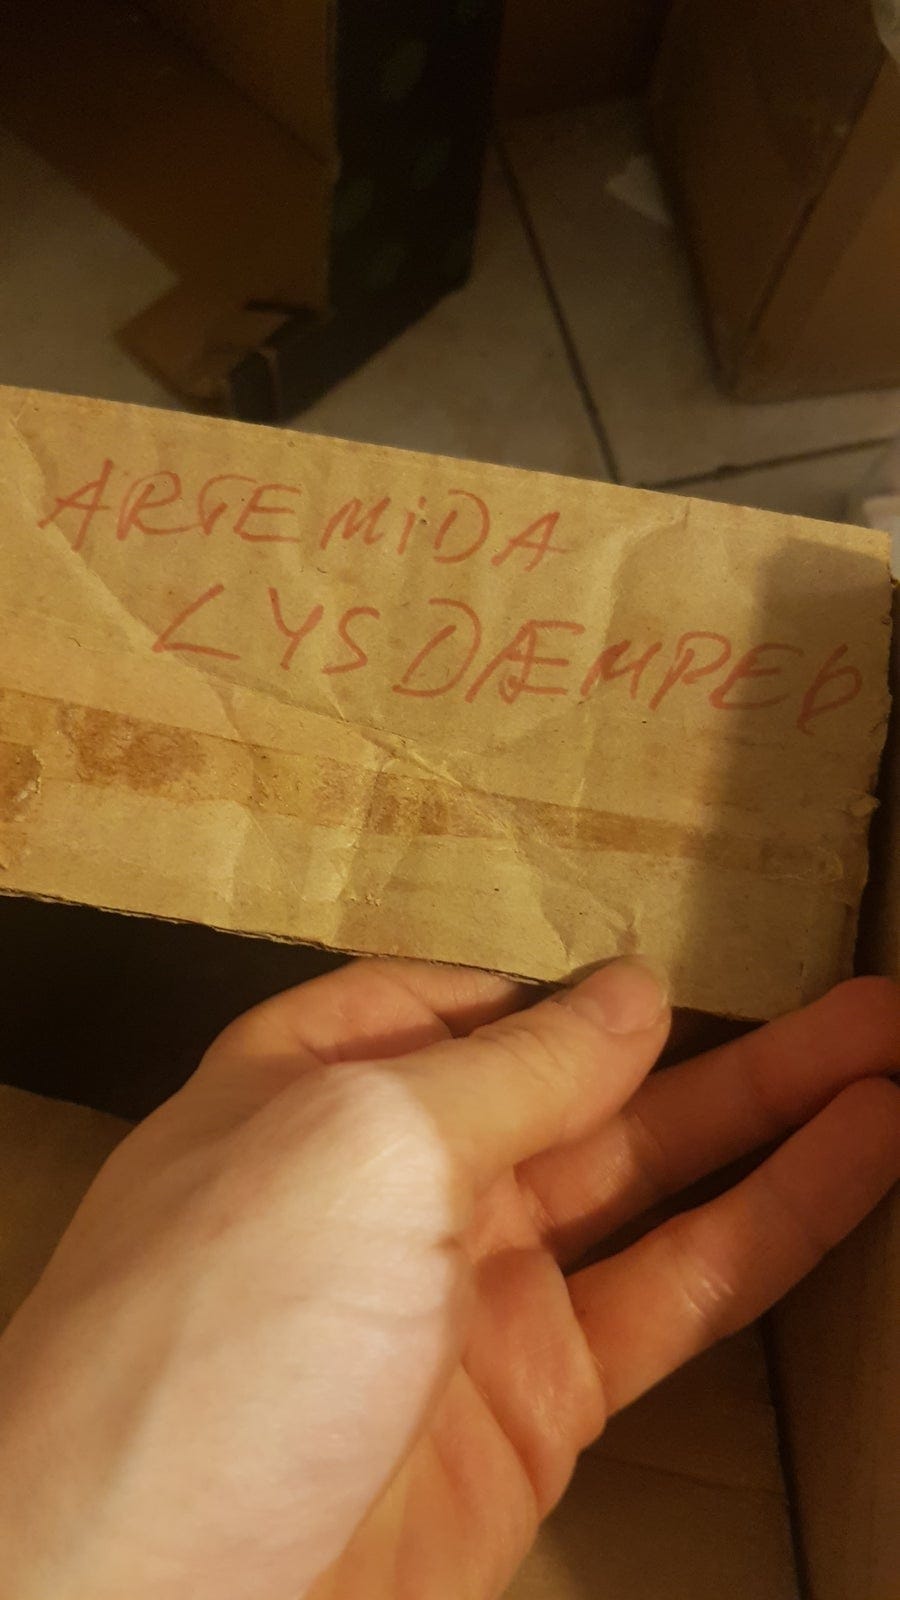 ARTEMIDA
LYSDÆMPER